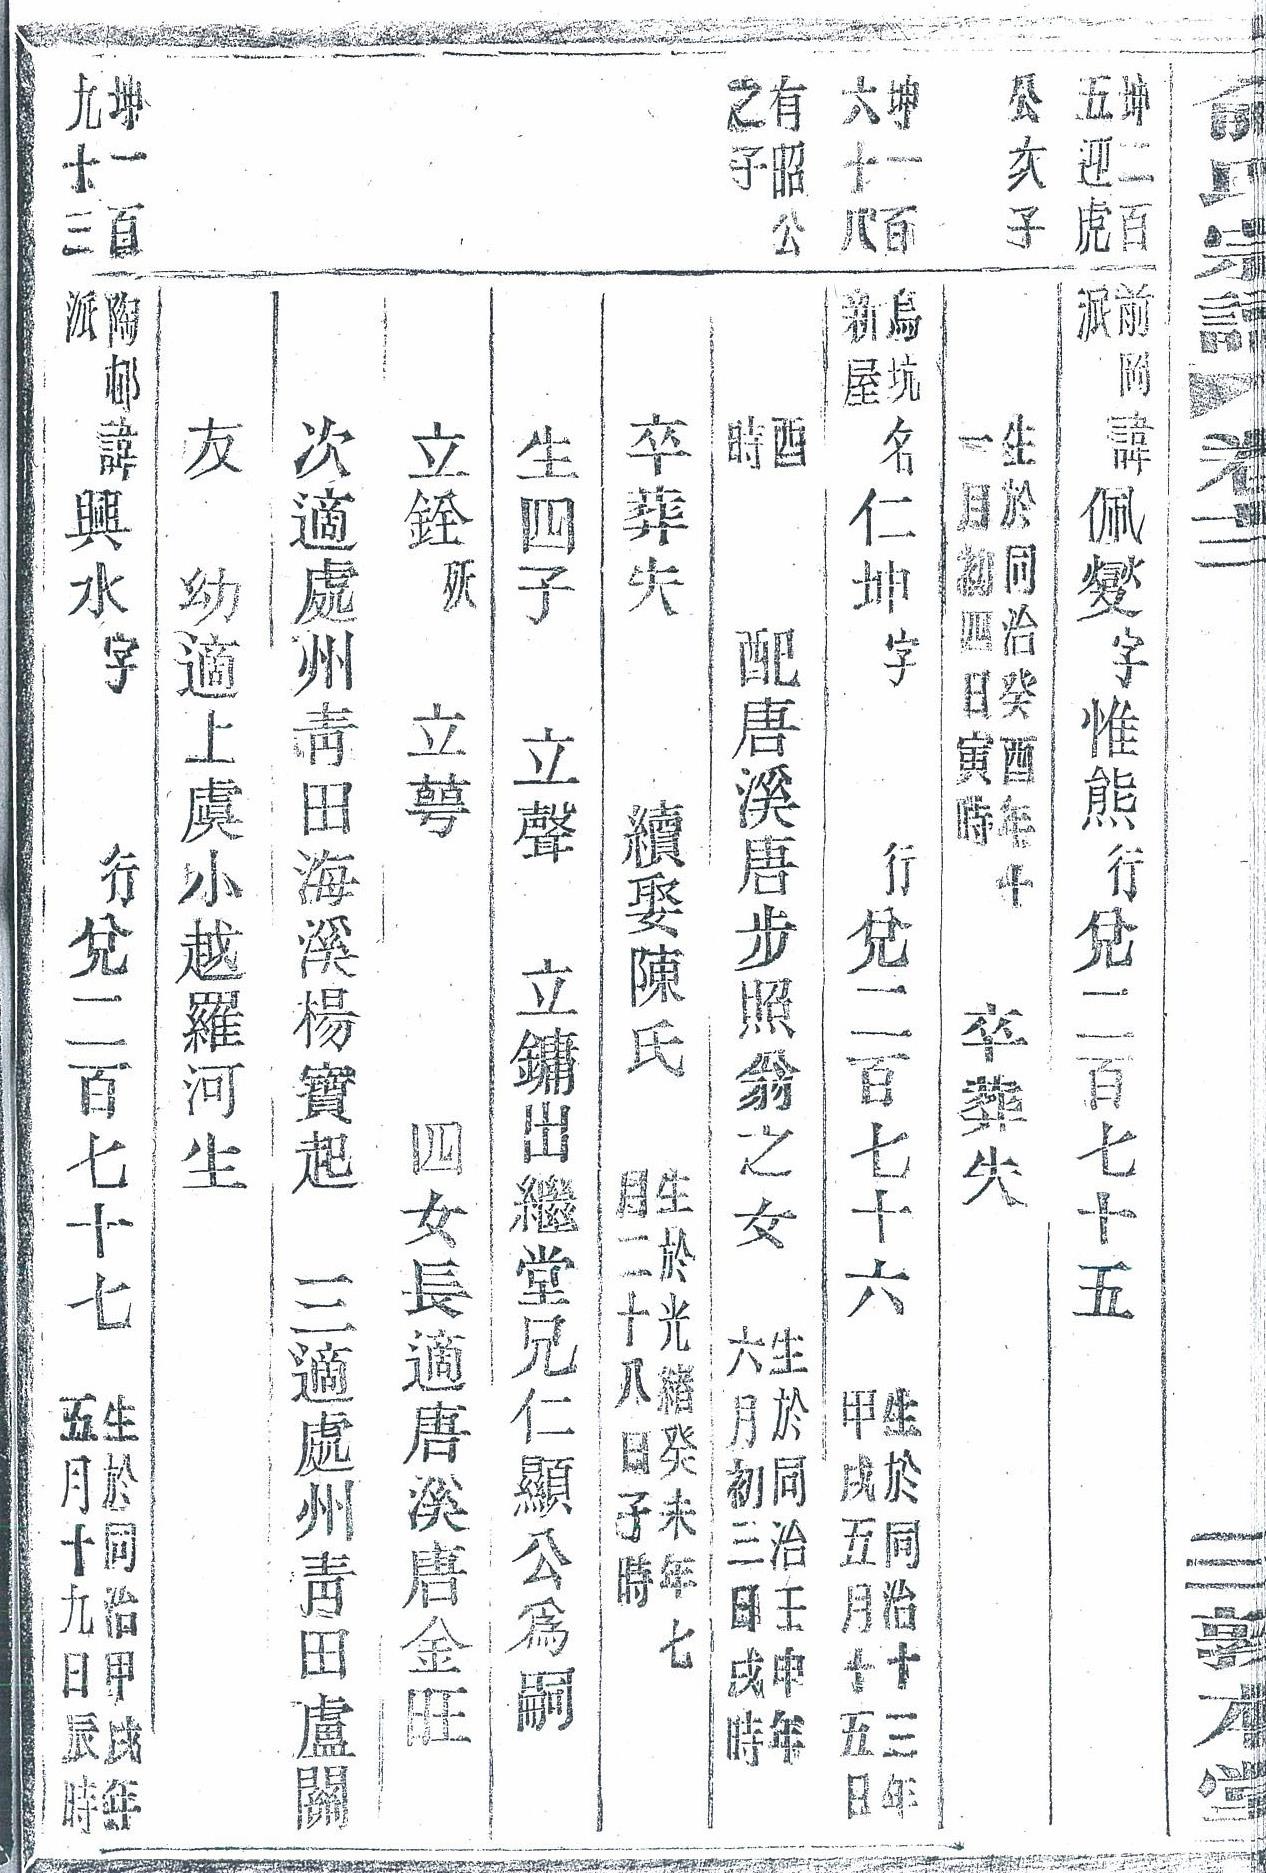 俞氏宗譜 卷二 三 敦本堂
坤二百
五迎虎
前岡
派
諱佩夑字惟熊行兌二百七十五
公亥子
生於同治癸酉年十
一月初四日寅時
卒葬失
坤一百
六十八
烏坑
新屋
名仁坤字 行兌二百七十六
生於同治十三年
甲戌五月十五日
有昭公
之子
酉
時
配唐溪唐步照翁之女
生於同治壬申年
六月初三日戌時
卒葬失 續娶陳氏
生於光緒癸未年七
月二十八日子時
生四子 立聲 立鏞出繼堂兄仁顯公為嗣
立銓殀 立萼 四女長適唐溪唐金旺
次適處州青田海溪楊寶起 三適處州青田盧關
友 幼適上虞小越羅河生
坤一百
九十三
陶邨
派
諱興水字 行兌二百七十七
生於同治甲戌年
五月十九日辰時